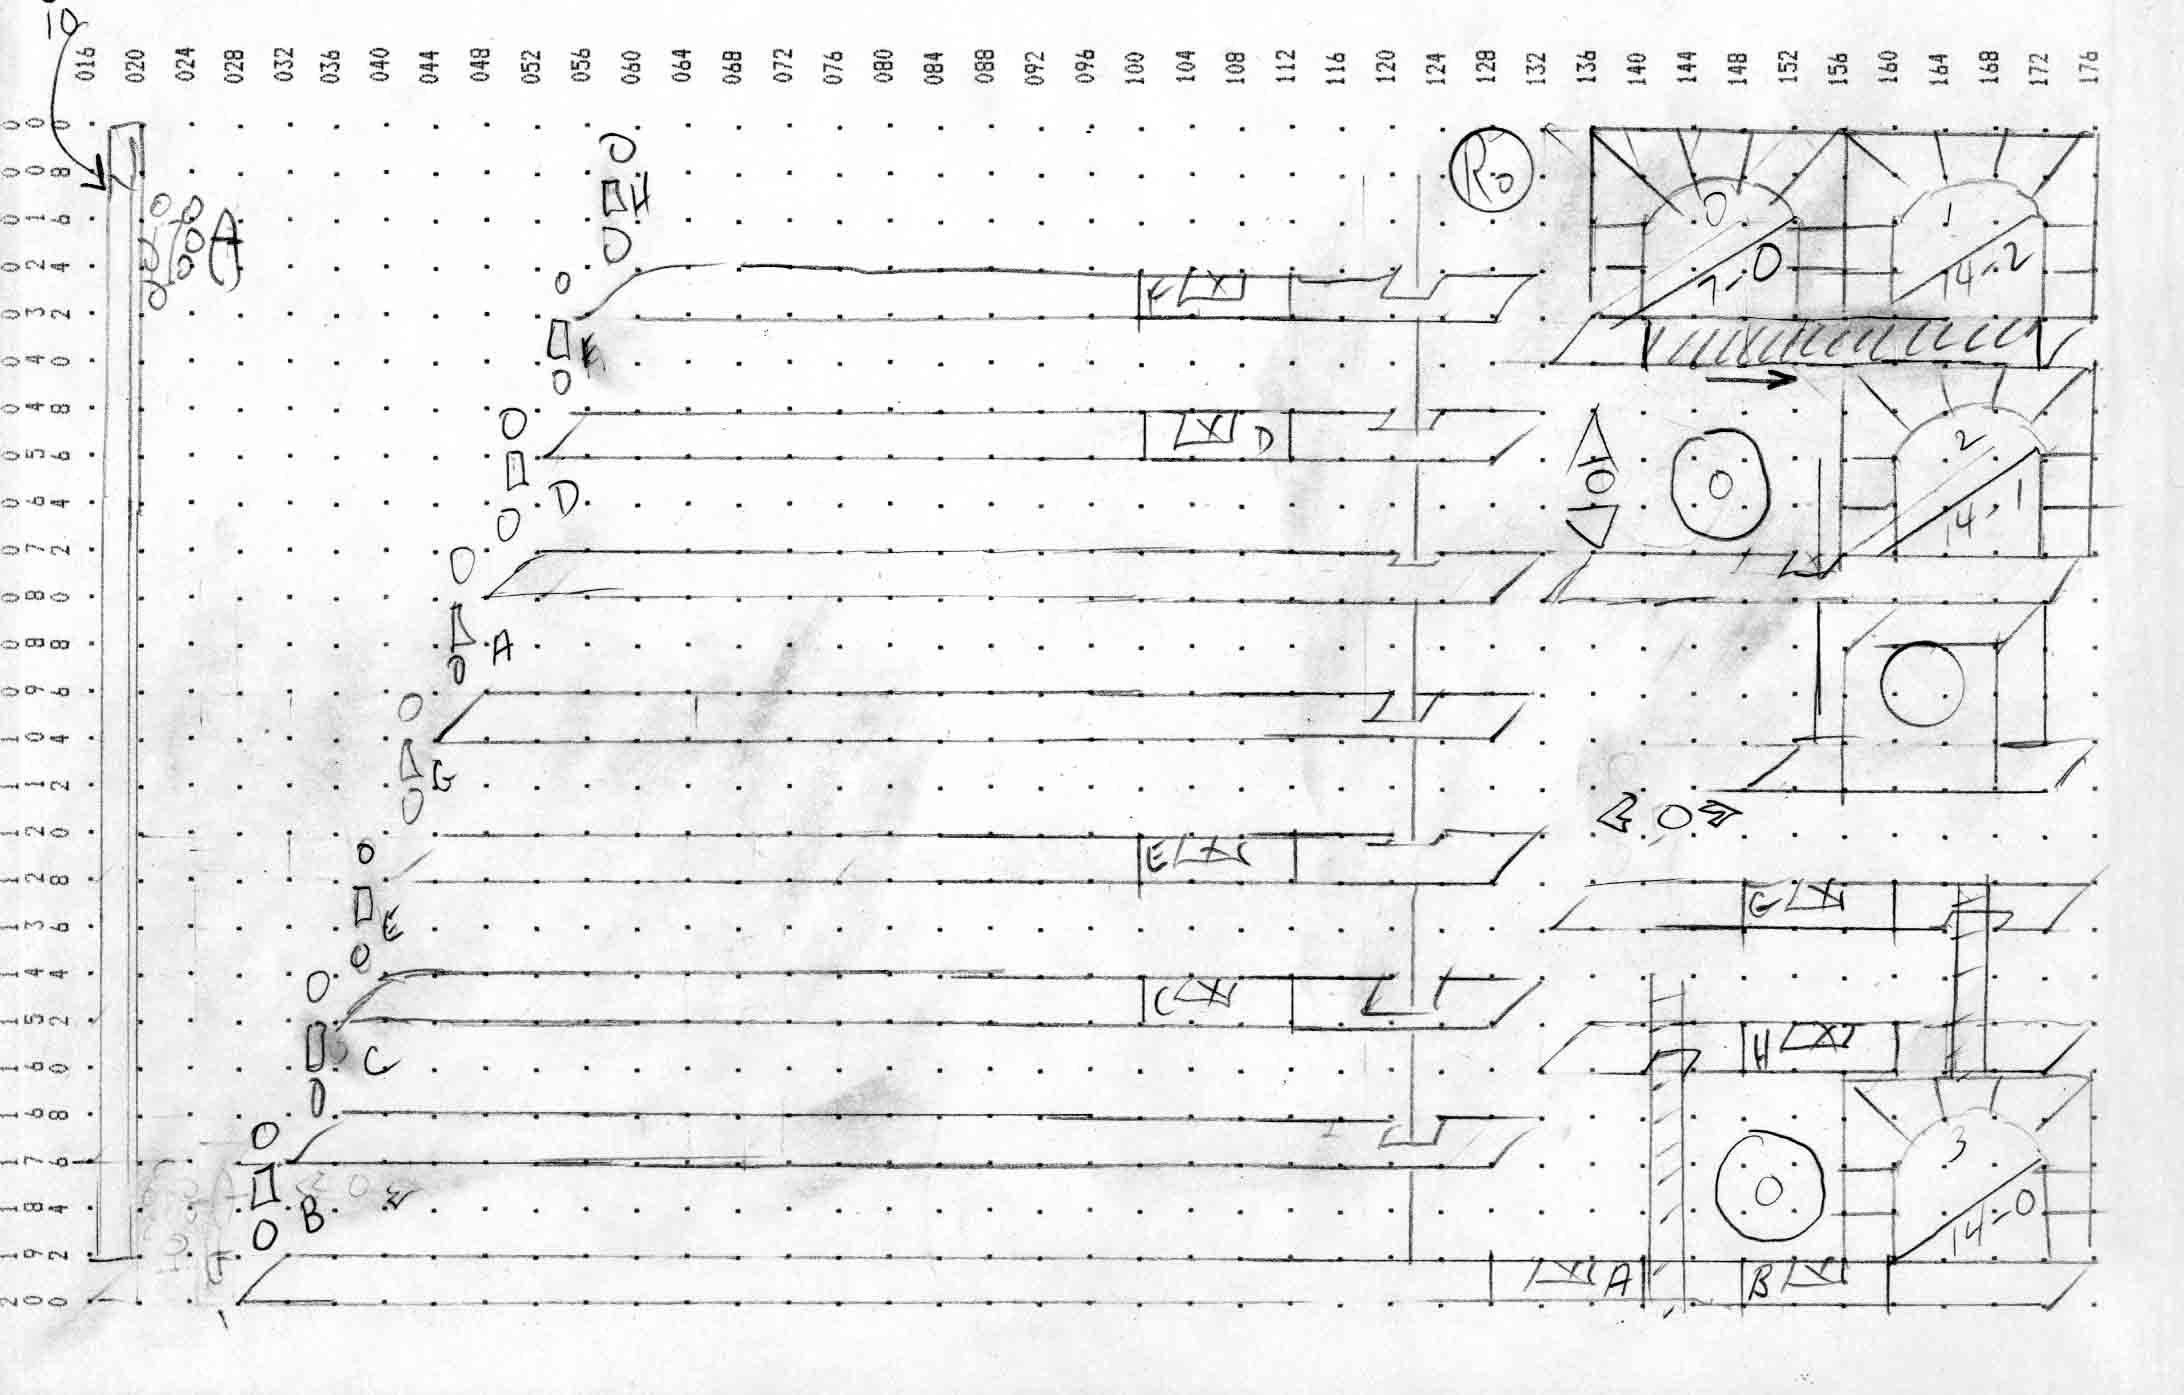 10
016 020 024 028 032 036 040 044 048 052 056 060 064 068 072 076 080 084 088 092 096 100 104 108 112 116 120 124 128 132 136 140 144 148 152 156 160 164 168 172 176
000
008
016
024
032
040
048
056
064
072
080
088
096
104
112
120
128
136
144
152
160
168
176
184
192
200
A
H
R0
0
7-0
1
14-2
X
X D
D
0
2
14-1
A
G
E X
E
G X
C X
C
H X
B
0
3
14-0
X A
B X